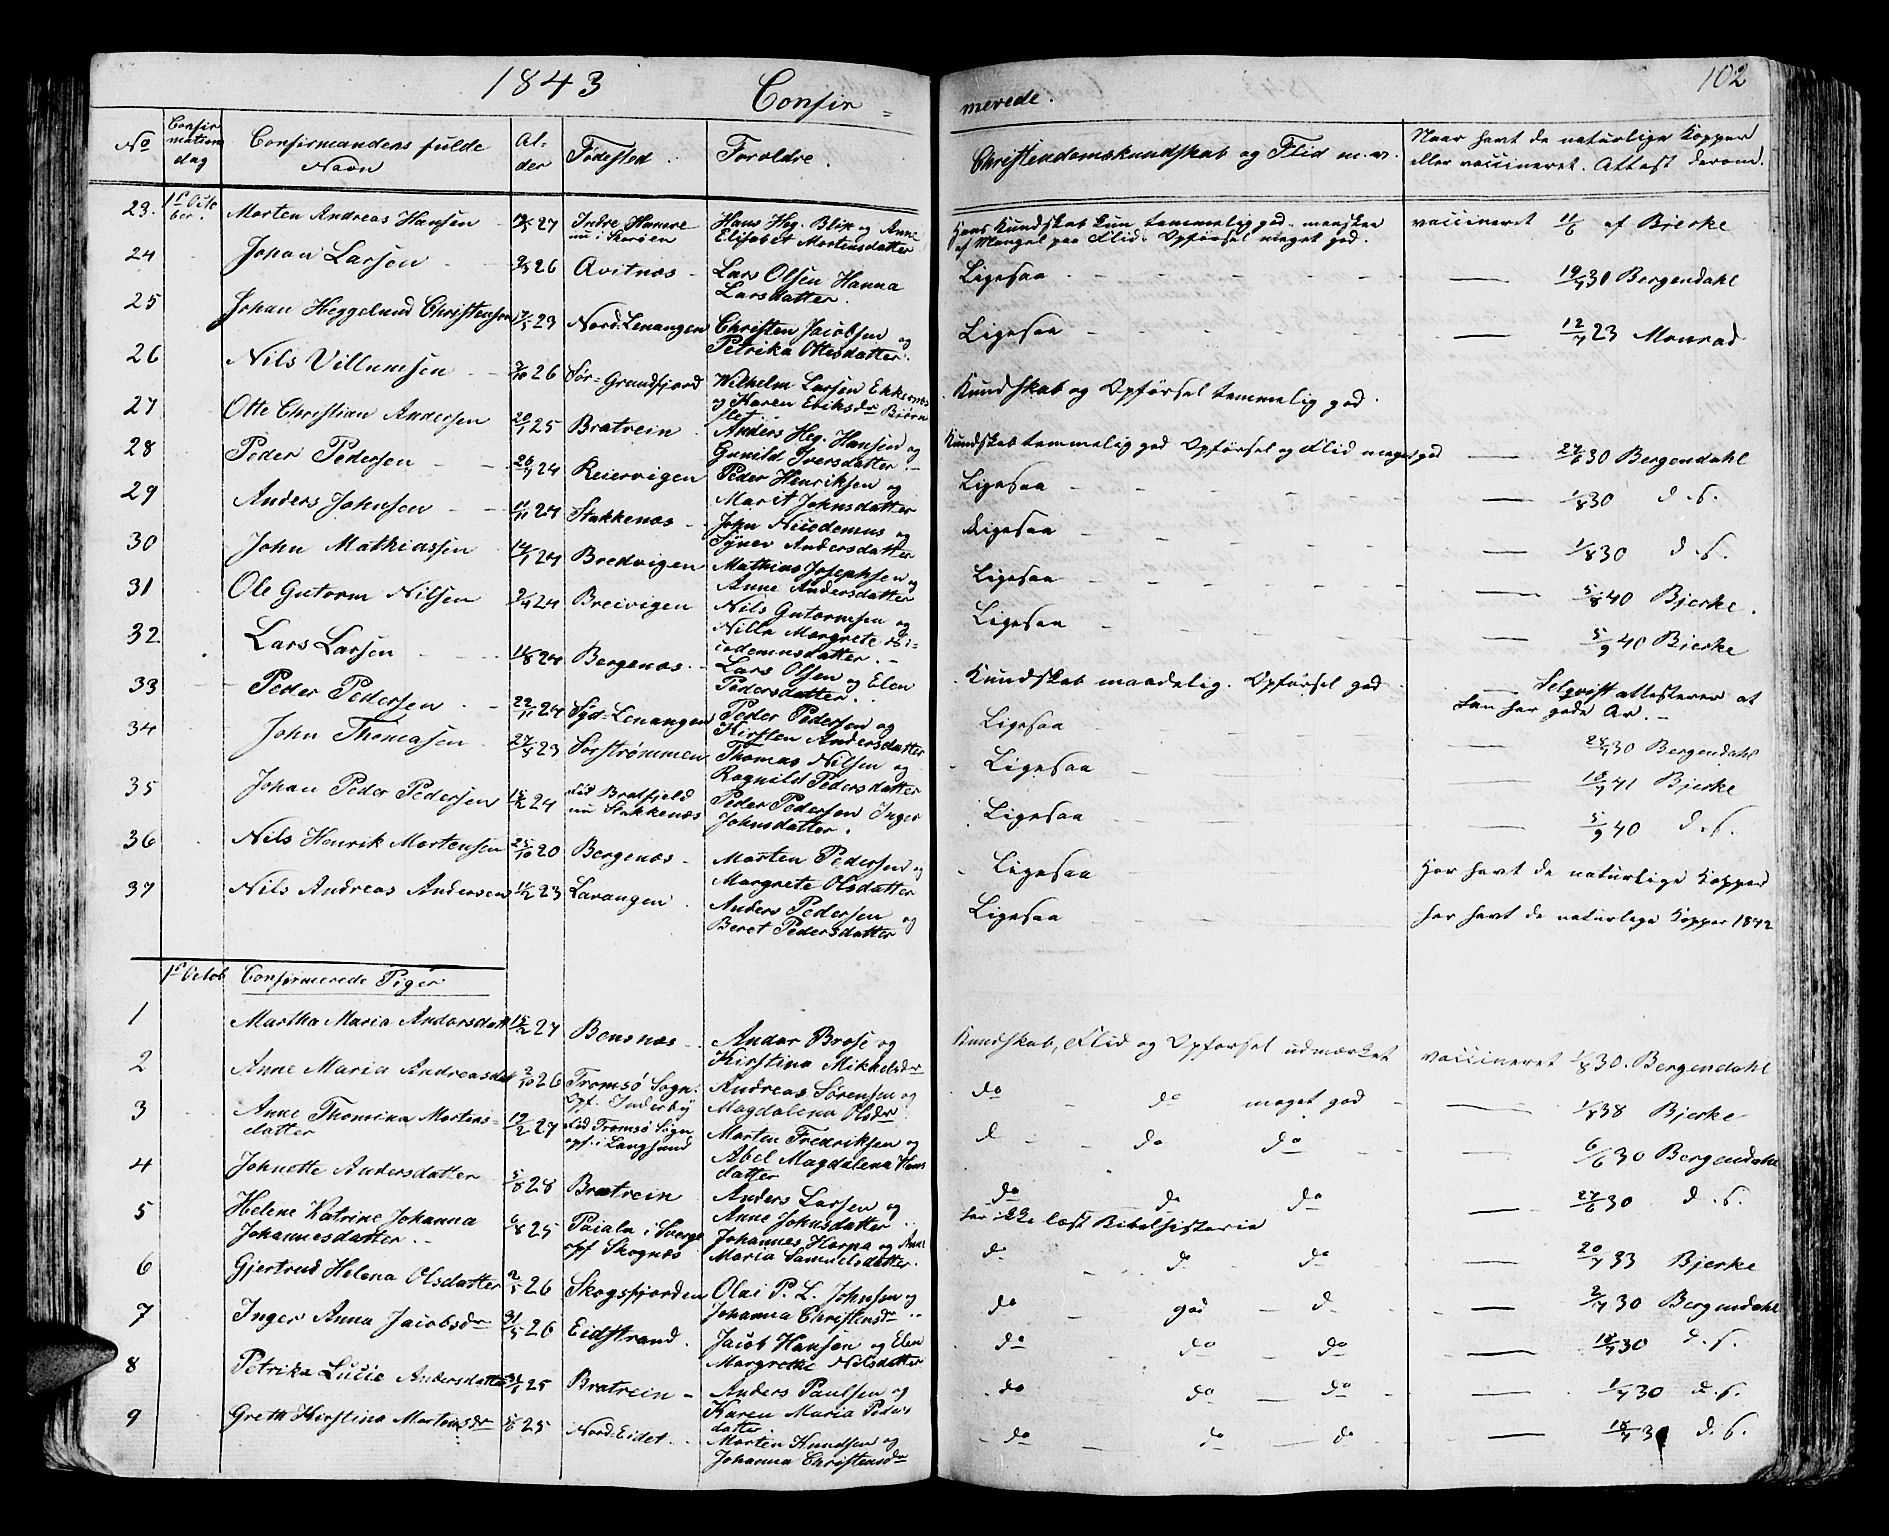 1843
Confir=
merede.
102
No
Confir
mations
dag
Confirmandens fulde
Navn
Al-
der
Födested.
Foreldre.
Christendomskundskab og Flid m.v.
Naar havt de naturlige Kopper
eller vaccineret. Attest derom.
23. 1ste Octo
ber. Morten Andreas Hansen 27 Indre Hamre
nu i Skoröen Hans Heg. Blix og Anne
Elisabet Mortensdatter Hans Kundskab kun temmelig god - maaskee
af Mangel paa Flid. Opförsel meget god. vaccineret 11/6 af Bjerke
24 Johan Larsen 26 Avitnæs Lars Olsen Hanna
Larsdatter. Ligesaa 19/7 30 Bergendahl
25 Johan Heggelund Christensen 17/5 23 Nord-Lenangen Christen Jacobsen og
Petrika Ottesdatter. Ligesaa 12/7 23 Monrad
26 Nils Villumsen 26 Sör-Grundfjord Wilhelm Larsen Ekkernes
og Karen Eriksdr Biörn Kundskab og Opförsel temmelig god.
27 Otte Christian Andersen 20/1 25 Bratrein Anders Heg. Hansen og
Gunild Iversdatter. Kundskab temmelig god Opförsel og Flid meget god 27/6 30 Bergendahl
28 Peder Pedersen 24 Reiervigen Peder Henriksen og
Marit Johnsdatter Ligesaa 1/8 30 d.s.
29 Anders Johnsen 24 Stakkenæs John Nicodemus og
Andersdatter Ligesaa 1/8 30 d.s.
30 John Mathiassen 14/1 24 Bredvigen Mathias Josephsen og
Anne Andersdatter Ligesaa 5/8 40 Bjerke.
31 Ole Gutorm Nilsen 24 Breivigen Nils Gutormsen og
Nilla Margrete Ni-
codemusdatter. Ligesaa 5/9 40 Bjerke
32 Lars Larsen 24 Bergenæs Lars Olsen og Elen
Pedersdatter. Kundskab maadelig. Opförsel god Selqvist attesterer at
han har gode Ar.
33 Peder Pedersen 22/11 24 Syd-Lenangen Peder Pedersen og
Kirsten Andersdatter Ligesaa 30 Bergendahl
34 John Thomasen 23 Sörströmmen Thomas Nilsen og
Ragnild Pedersdatter Ligesaa 18/7 41 Bjerke
35 Johan Peder Pedersen 24 ved Bratfjeld
nu Stakkenæs Peder Pedersen Inger
Johnsdatter. Ligesaa 5/9 40 d.s.
36 Nils Henrik Mortensen 25/10 20 Bergenæs Morten Pedersen og
Margrete Olsdatter Ligesaa Har havt de naturlige Kopper
37 Nils Andreas Andersen 23 Lavangen Anders Pedersen og
Beret Pedersdatter Ligesaa har havt de naturlige Kopper 1842
1ste Octob Confirmerede Piger
1 Martha Maria Andorsdatt 27 Bensnæs Andor Brose og
Kirstina Mikkelsdr Kundskab, Flid og Opförsel udmærket vaccineret 1/8 30. Bergendahl
2 Anne Maria Andreasdat 2/10 26 Tromsö Sogn
opf. Inderby Andreas Sörensen og
Magdalena Olsdr. do do meget god 1/8 38 Bjerke
3 Anne Thomina Mortens-
datter 19/2 27 ved Tromsö Sogn
opf. i Langsund Morten Fredriksen og
Abel Magdalena Hans
datter d do do 6/6 30 Bergendahl
4 Johnette Andersdatter 5/8 28 Bratrein Anders Larsen og
Anne Johnsdatter do do do 27/6 30 d.s.
har ikke læst Bibelhistorie
5 Helene Katrine Johanna
Johannesdatter 6/8 25 Paiala i Sverge
opf Skognæs Johannes Harpa og Anne
Maria Samuelsdatter. d d do 20/7 33 Bjerke
6 Gjertrud Helena Olsdatter 2/5 26 Skogsfjorden Olai P. L. Johnsen og
Johanna Christensdr do god d 2/7 30 Bergendahl
7 Inger Anna Jacobsdr 31/5 26 Eidstrand. Jacob Hansen og Elen
Margrethe Nilsdatter do do do 18/7 30 d.s.
8 Petrika Lucie Andersdatter 25 Bratrein Anders Paulsen og
Karen Maria Peders
datter. do do do 1/7 30 d.s.
9 Greth Kirstina Mortensdr 25 Nord-Eidet Morten Knudsen og
Johanna Christensdr do do do 18/7 3 d.s.